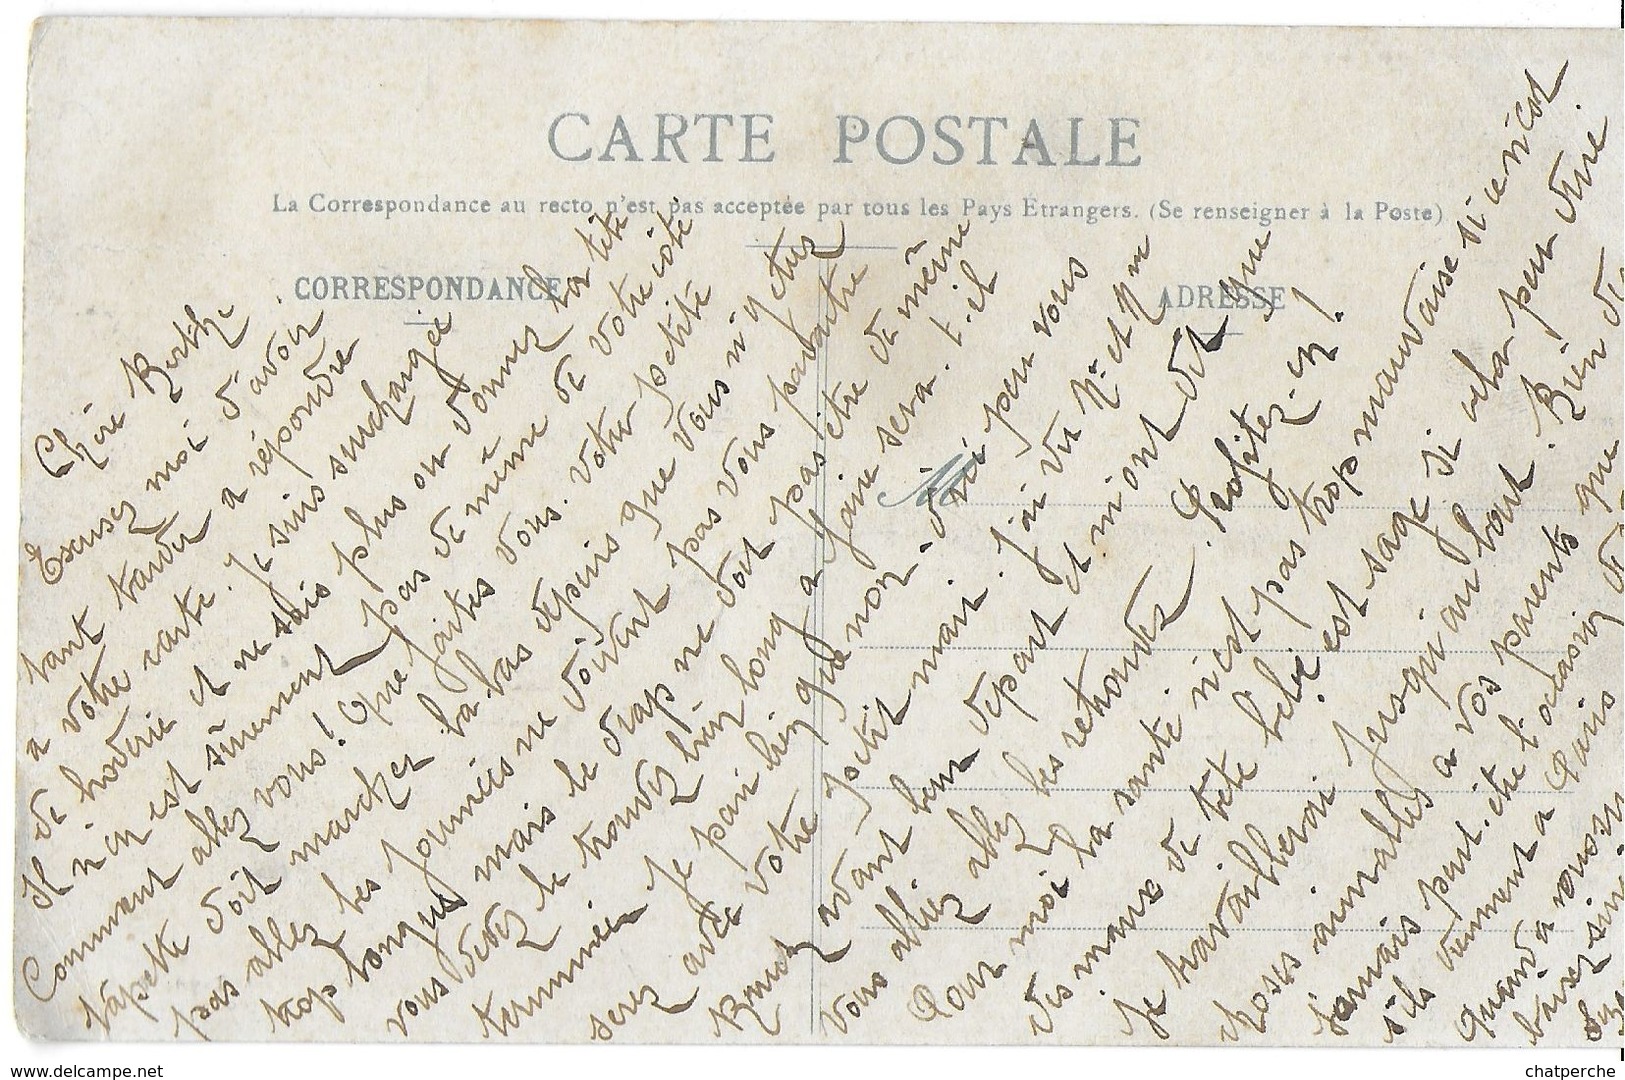 CARTE POSTALE
La Correspondance au recto n'est pas acceptée par tous les Pays Étrangers. (Se renseigner à la Poste)
CORRESPONDANCE
ADRESSE
M
Chère Berthe
Excusez moi d'avoir
tant tarder a répondre
a votre carte. Je suis surchargée
de broderie et ne sais plus ou donner la tête
Il n'en est surement pas de même de votre coté
Comment allez vous! Que faites vous. Votre petite
tapette doit marcher la bas depuis que vous n'y etes
pas allez les journées ne doivent pas vous paraitre
trop longues mais le drap ne doit pas être de même
vous devez le trouvez bien long a faire sera-t-il
terminée je pari bien que non. d'ici peu vous
serez avec votre petit mari. J'ai vu Mr et Mm
avant leur départ et m'ont dit que
vous alliez allez les retrouver. Profitez-en!
Pour moi la santé n'est pas trop mauvaise si ce n'est
des maux de tête bébé est sage si cela peu dure
je travaillerai jusqu'au bout. Rien de
choses aimables a vos parents que
jamais peut-etre l'occasion
s'ils viennent a Paris
Quand a